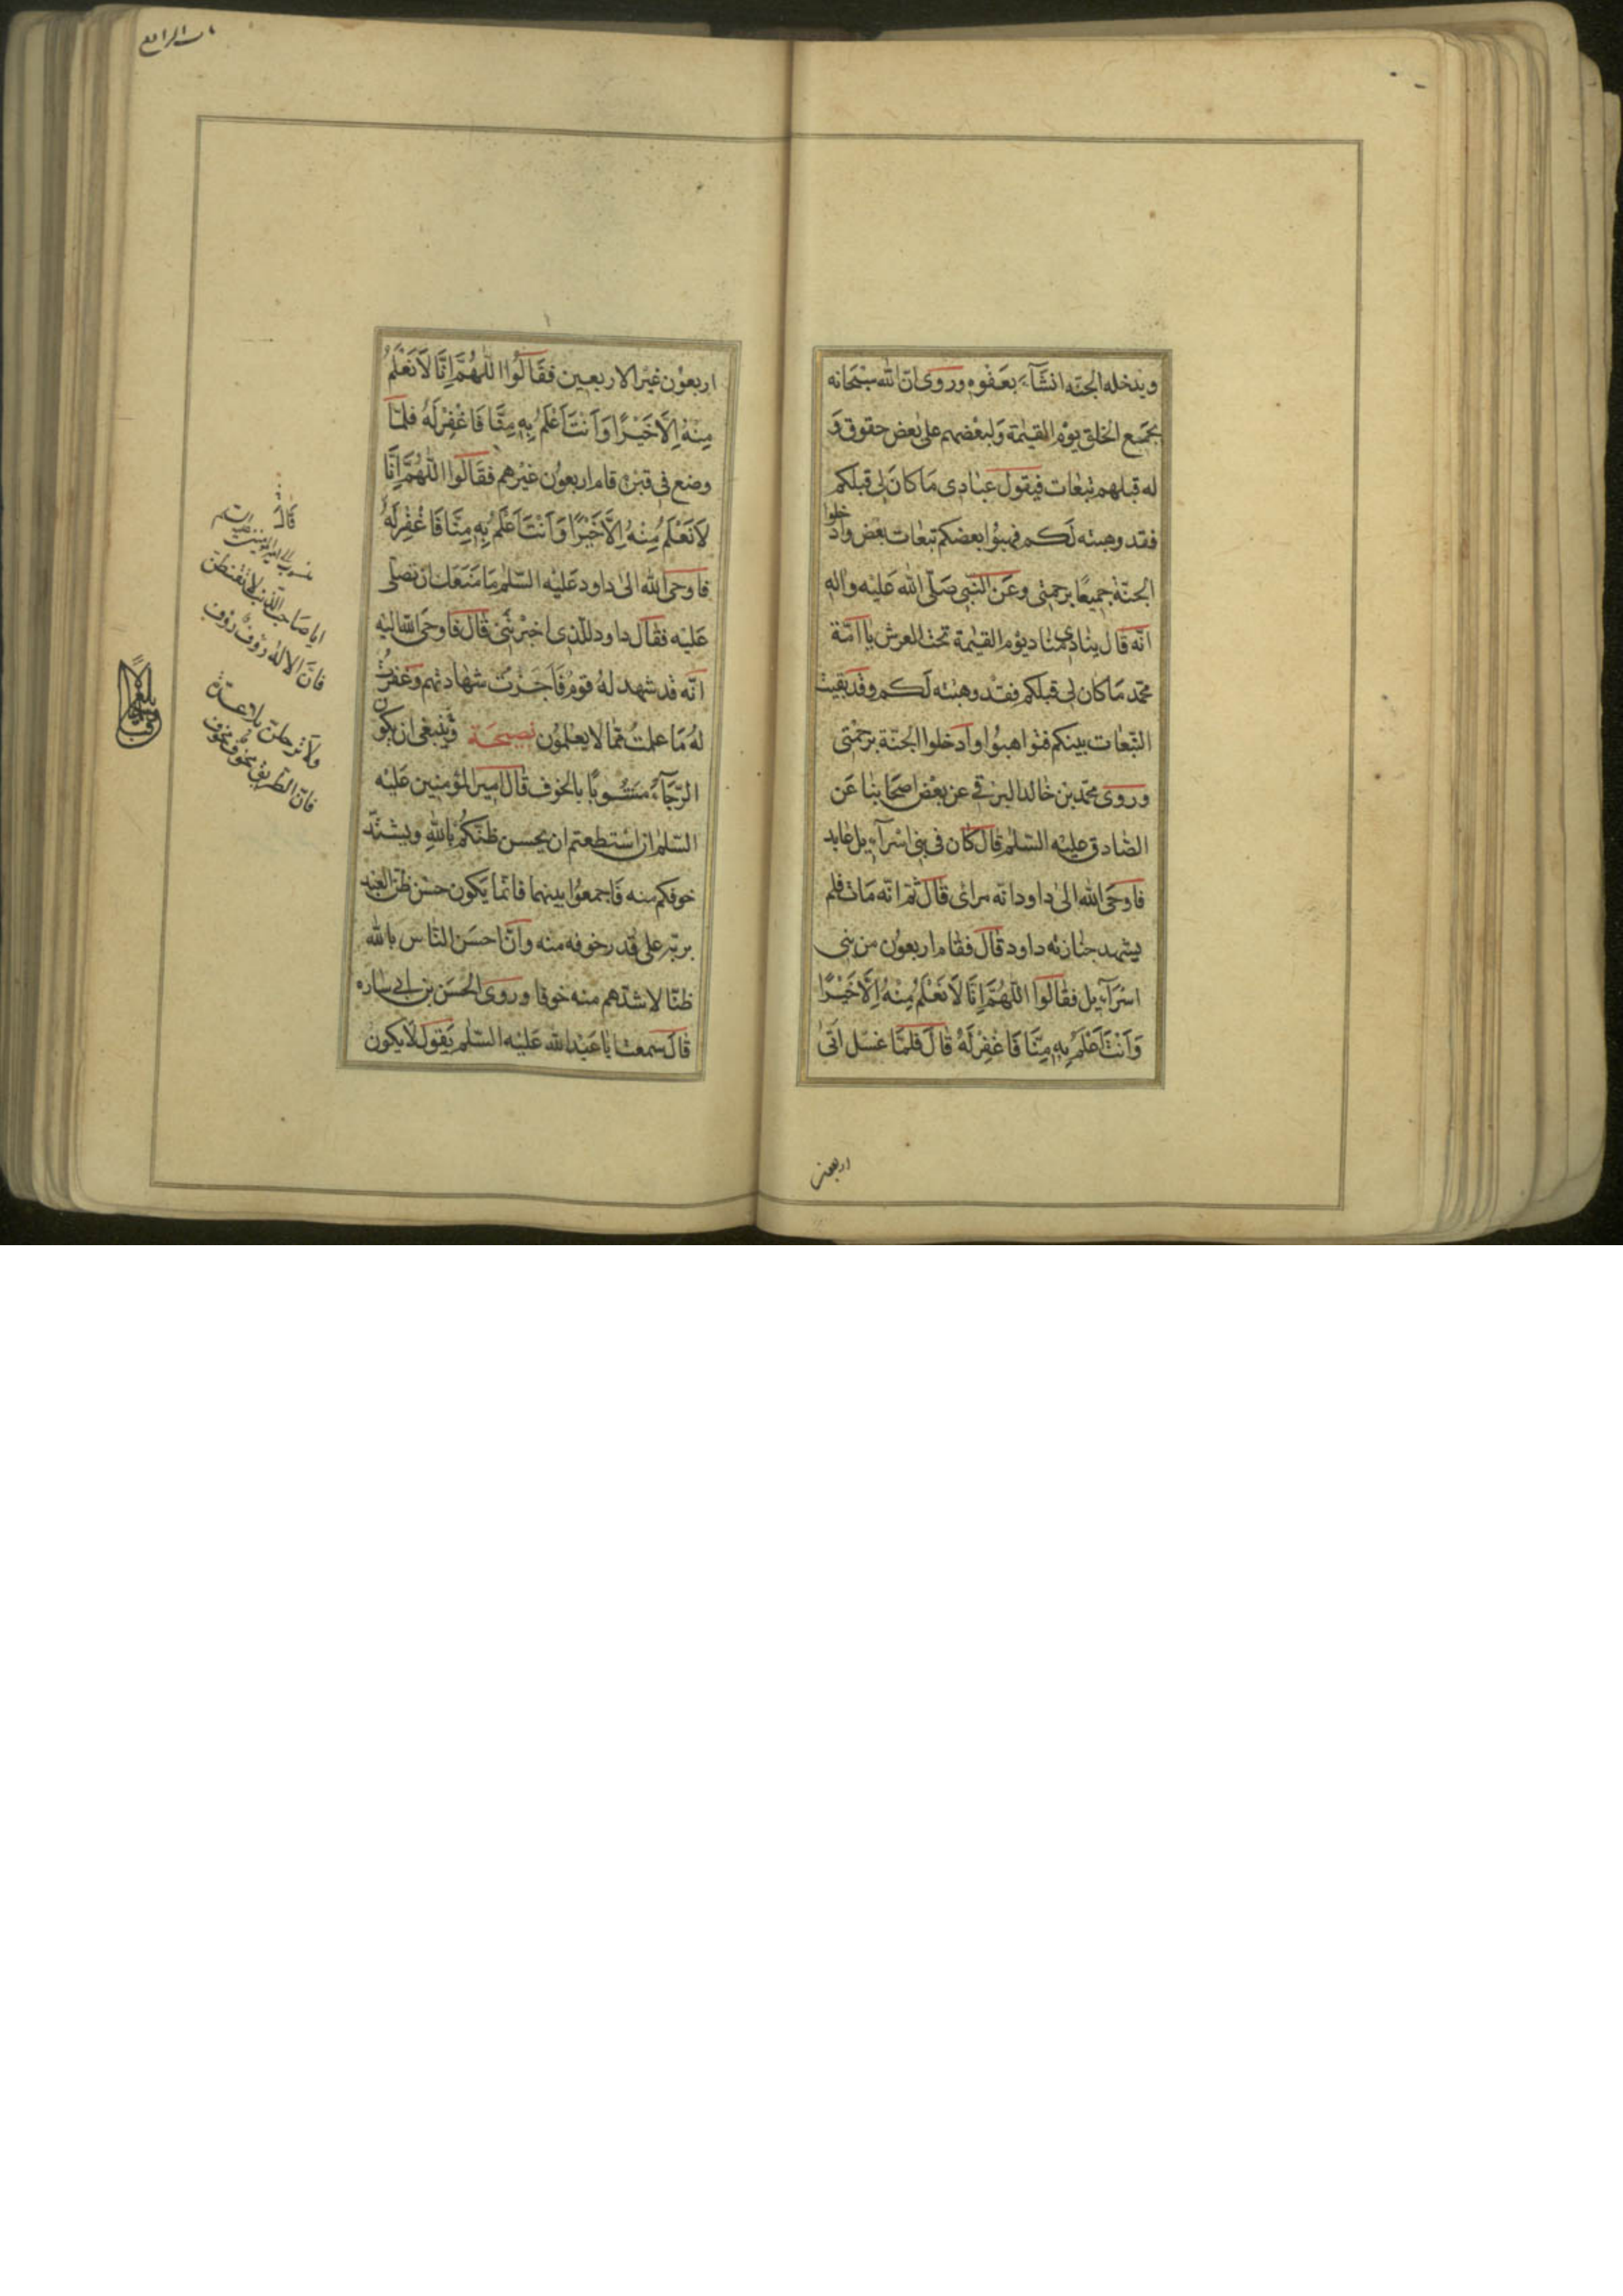 ويدخله الجنّه انشآء بعفوه وروى انّ الله سبحانه
يجمع الخلق يوم القيمة ولبعضهم على بعض حقوق و
له قبلهم تبعات فيقول عبادى ما كان لى قبلكم
فقد وهبته لكم فهبوا بعضكم تبعات بعض وادخلوا
الجنّة جميعًا برحمتى وعن النّبى صلّى الله عليه واله
انّه قال ينادى مناد يوم القيمة تحت العرش يا امّة
محمّد ما كان لى قبلكم فقد وهبته لكم وقد بقيت
التّبعات بينكم فتواهبوا وادخلوا الجنّة برحمتى
وروى محمّد بن خالد البرقى عن بعض اصحابنا عن
الصّادق عليه السّلم قال كان فى بنى اسرآءيل عابد
فاوحى الله الى داود انّه مرائ قال ثمّ انّه مات فلم
يشهد جنازته داود قال فقام اربعون من بنى
اسرآءيل فقالوا اللّهُمَّ اِنَّا لاَ نَعْلَمُ مِنْهُ اِلَّا خَيْرًا
وَاَنْتَ اَعْلَمُ بِهِ مِنَّا فَاغْفِرْ لَهُ قال فلمّا غسّل اتى
اربعون
باب الرابع
اربعون غير الاربعين فقالوا اللّهُمَّ اِنَّا لاَ نَعْلَمُ
مِنْهُ اِلَّا خَيْرًا وَاَنْتَ اَعْلَمُ بِهِ مِنَّا فَاغْفِرْ لَهُ فلمّا
وضع فى قبره قام اربعون غيرهم فقالوا اللّهُمَّ اِنَّا
لاَ نَعْلَمُ مِنْهُ اِلَّا خَيْرًا وَاَنْتَ اَعْلَمُ بِهِ مِنَّا فَاغْفِرْ لَهُ
فاوحى الله الى داود عليه السّلم ما منعك ان تصلّى
عليه فقال داود للّذى اخبرتنى قال فاوحى الله اليه
انّه قد شهد له قوم فاجزت شهادتهم وغفرت
له ما علمت ممّا لا يعلمون نصيحة وينبغى ان يكون
الرّجآء مشوبًا بالخوف قال امير المؤمنين عليه
السّلم ان استطعتم ان يحسن ظنّكم بالله ويشتدّ
خوفكم منه فاجمعوا بينهما فانّما يكون حسن ظنّ العبد
بربّه على قدر خوفه منه وانّ احسن النّاس بالله
ظنّا لاشدّهم منه خوفا وروى الحسن بن ابى ساره
قال سمعت ابا عبد الله عليه السّلم يقول لا يكون
قال
منسوب الى امير المؤمنين عليه السلم
ايا صاحب الذّنب لا تقنطن
فانّ الاله رؤف رؤف
ولا ترحلنّ بلا عدّة
فانّ الطّريق مخوف مخوف